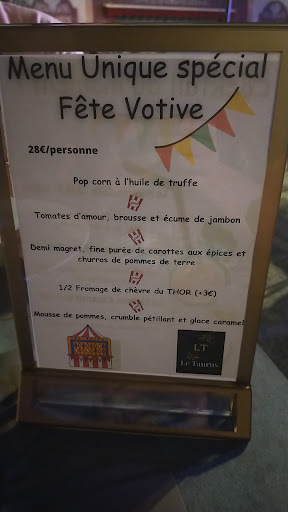 Menu Unique spécial
Fête Votive
28€/personne
Pop corn à l'huile de truffe
Tomates d'amour, brousse et écume de jambon
Demi magret, fine purée de carottes aux épices et
churros de pommes de terre
1/2 Fromage de chèvre du THOR (+3€)
Mousse de pommes, crumble pétillant et glace caramel
LT
Le Taurus